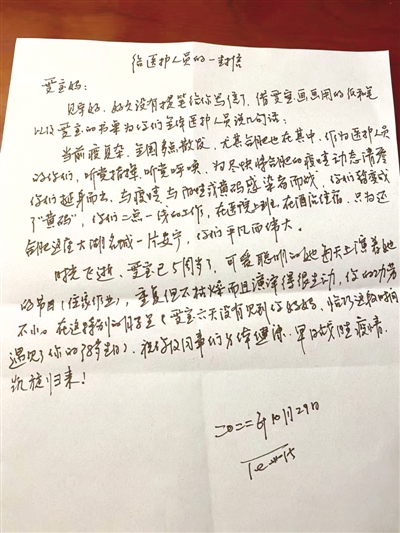 给医护人员的一封信
贾宝妈:
见字好,好久没有提笔给你写信了,借贾宝画画用的纸和笔
以及贾宝的书桌为你们全体医护人员说几句话:
当前疫复杂,全国多点散发,尤其合肥也在其中,作为医护人员
的你们,听党指挥,听党呼唤,为尽快将合肥的疫情动态清零
你们挺身而去,与疫情与阳性或黄码感染者而战,你们转变成
了“黄码”,你们二点一线的工作,在医院上班,在酒店住宿,只为还
合肥这座大湖名城一片安宁,你们平凡而伟大。
时光飞逝,贾宝已5周岁了,可爱聪明的她每天上演着她
的节目(任务作业),重复但不枯燥而且演译得很生动,你的功劳
不小。在这特别的日子里(贾宝六天没有见到你妈妈,恰巧这段时间
遇见了你的38岁生日),祝你及同事们身体健康,早日战胜疫情,
凯旋归来!
二〇二二年10月29日